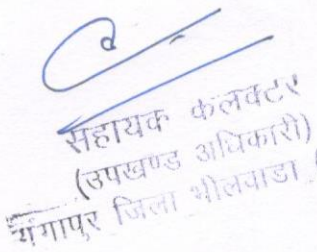 सहायक कलक्टर
(उपखण्ड अधिकारी)
गंगापुर जिला भीलवाडा